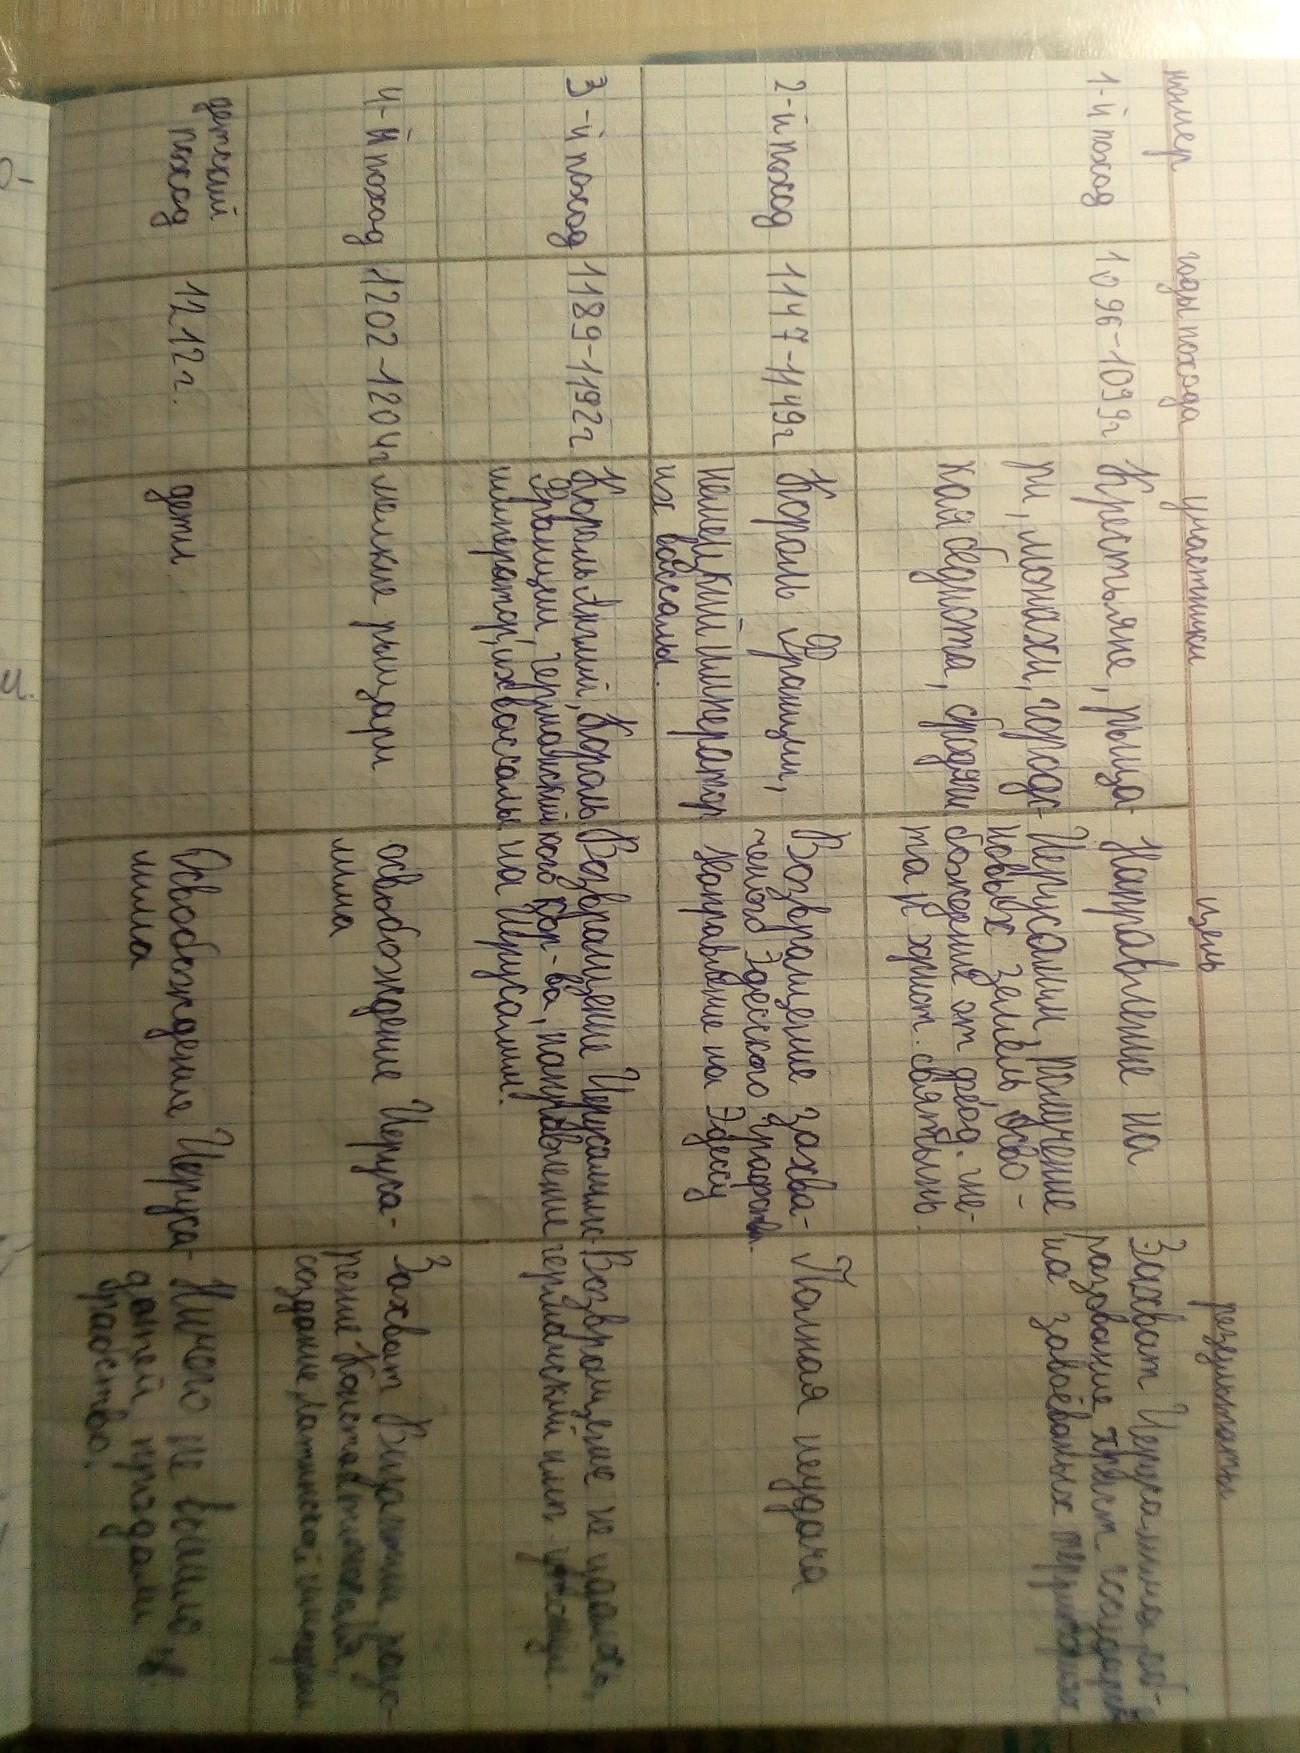 номер
годы похода
участники
цель
результаты
1-й поход
1096-1099г
Крестьяне, рыца-
ри, монахи, городс-
кая беднота, бродяги
Направление на
Иерусалим, получение
новых земель, осво-
бождение от феод. гне-
та и христ. святынь.
Захват Иерусалима, об-
разование христ. государств
на завоёваных территориях
2-й поход
1147-1149г
Король Франции,
немецкий император
их вассалы.
Возвращение захва-
ченого Эдесского графства.
Направление на Эдессу
Полная неудача
3-й поход
1189-1192г
Король Англии, Король
Франции, германский
император, их вассалы
Возвращение Иерусалимс-
кого кор-ва, направление
на Иерусалим.
Возвращение не удалось,
германский имп.
4-й поход
1202-1204г
мелкие рыцари
освобождение Иеруса-
лима
Захват Византии, разо-
рение Константинополя,
создание Латинской империи
детский
поход
1212г.
дети
Освобождение Иеруса-
лима
Ничего не вышло,
детей продали в
рабство.